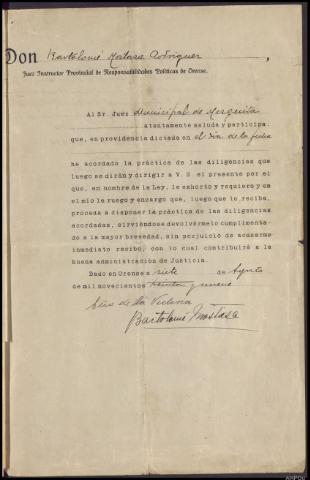 Don Bartolomé Mostaza Rodriguez
Juez Instructor Provincial de Responsabilidades Políticas de Orense.
Al Sr. Juez Municipal de Merquita
atentamente saluda y participa
que, en providencia dictada en el día de la fecha
ha acordado la práctica de las diligencias que
luego se dirán y dirigir a V. S. el presente por el
que, en nombre de la ley, le exhorto y requiero y en
el mío le ruego y encargo que, luego que lo reciba,
proceda a disponer la práctica de las diligencias
acordadas, sirviéndose devolvérmelo cumplimenta-
do a la mayor brevedad, sin perjuicio de acusarme
inmediato recibo, con lo cual contribuirá a la
buena administración de Justicia.
Dado en Orense a siete de Agosto
de mil novecientos treinta y nueve
Año de la Victoria
Bartolomé Mostaza
AHPOu